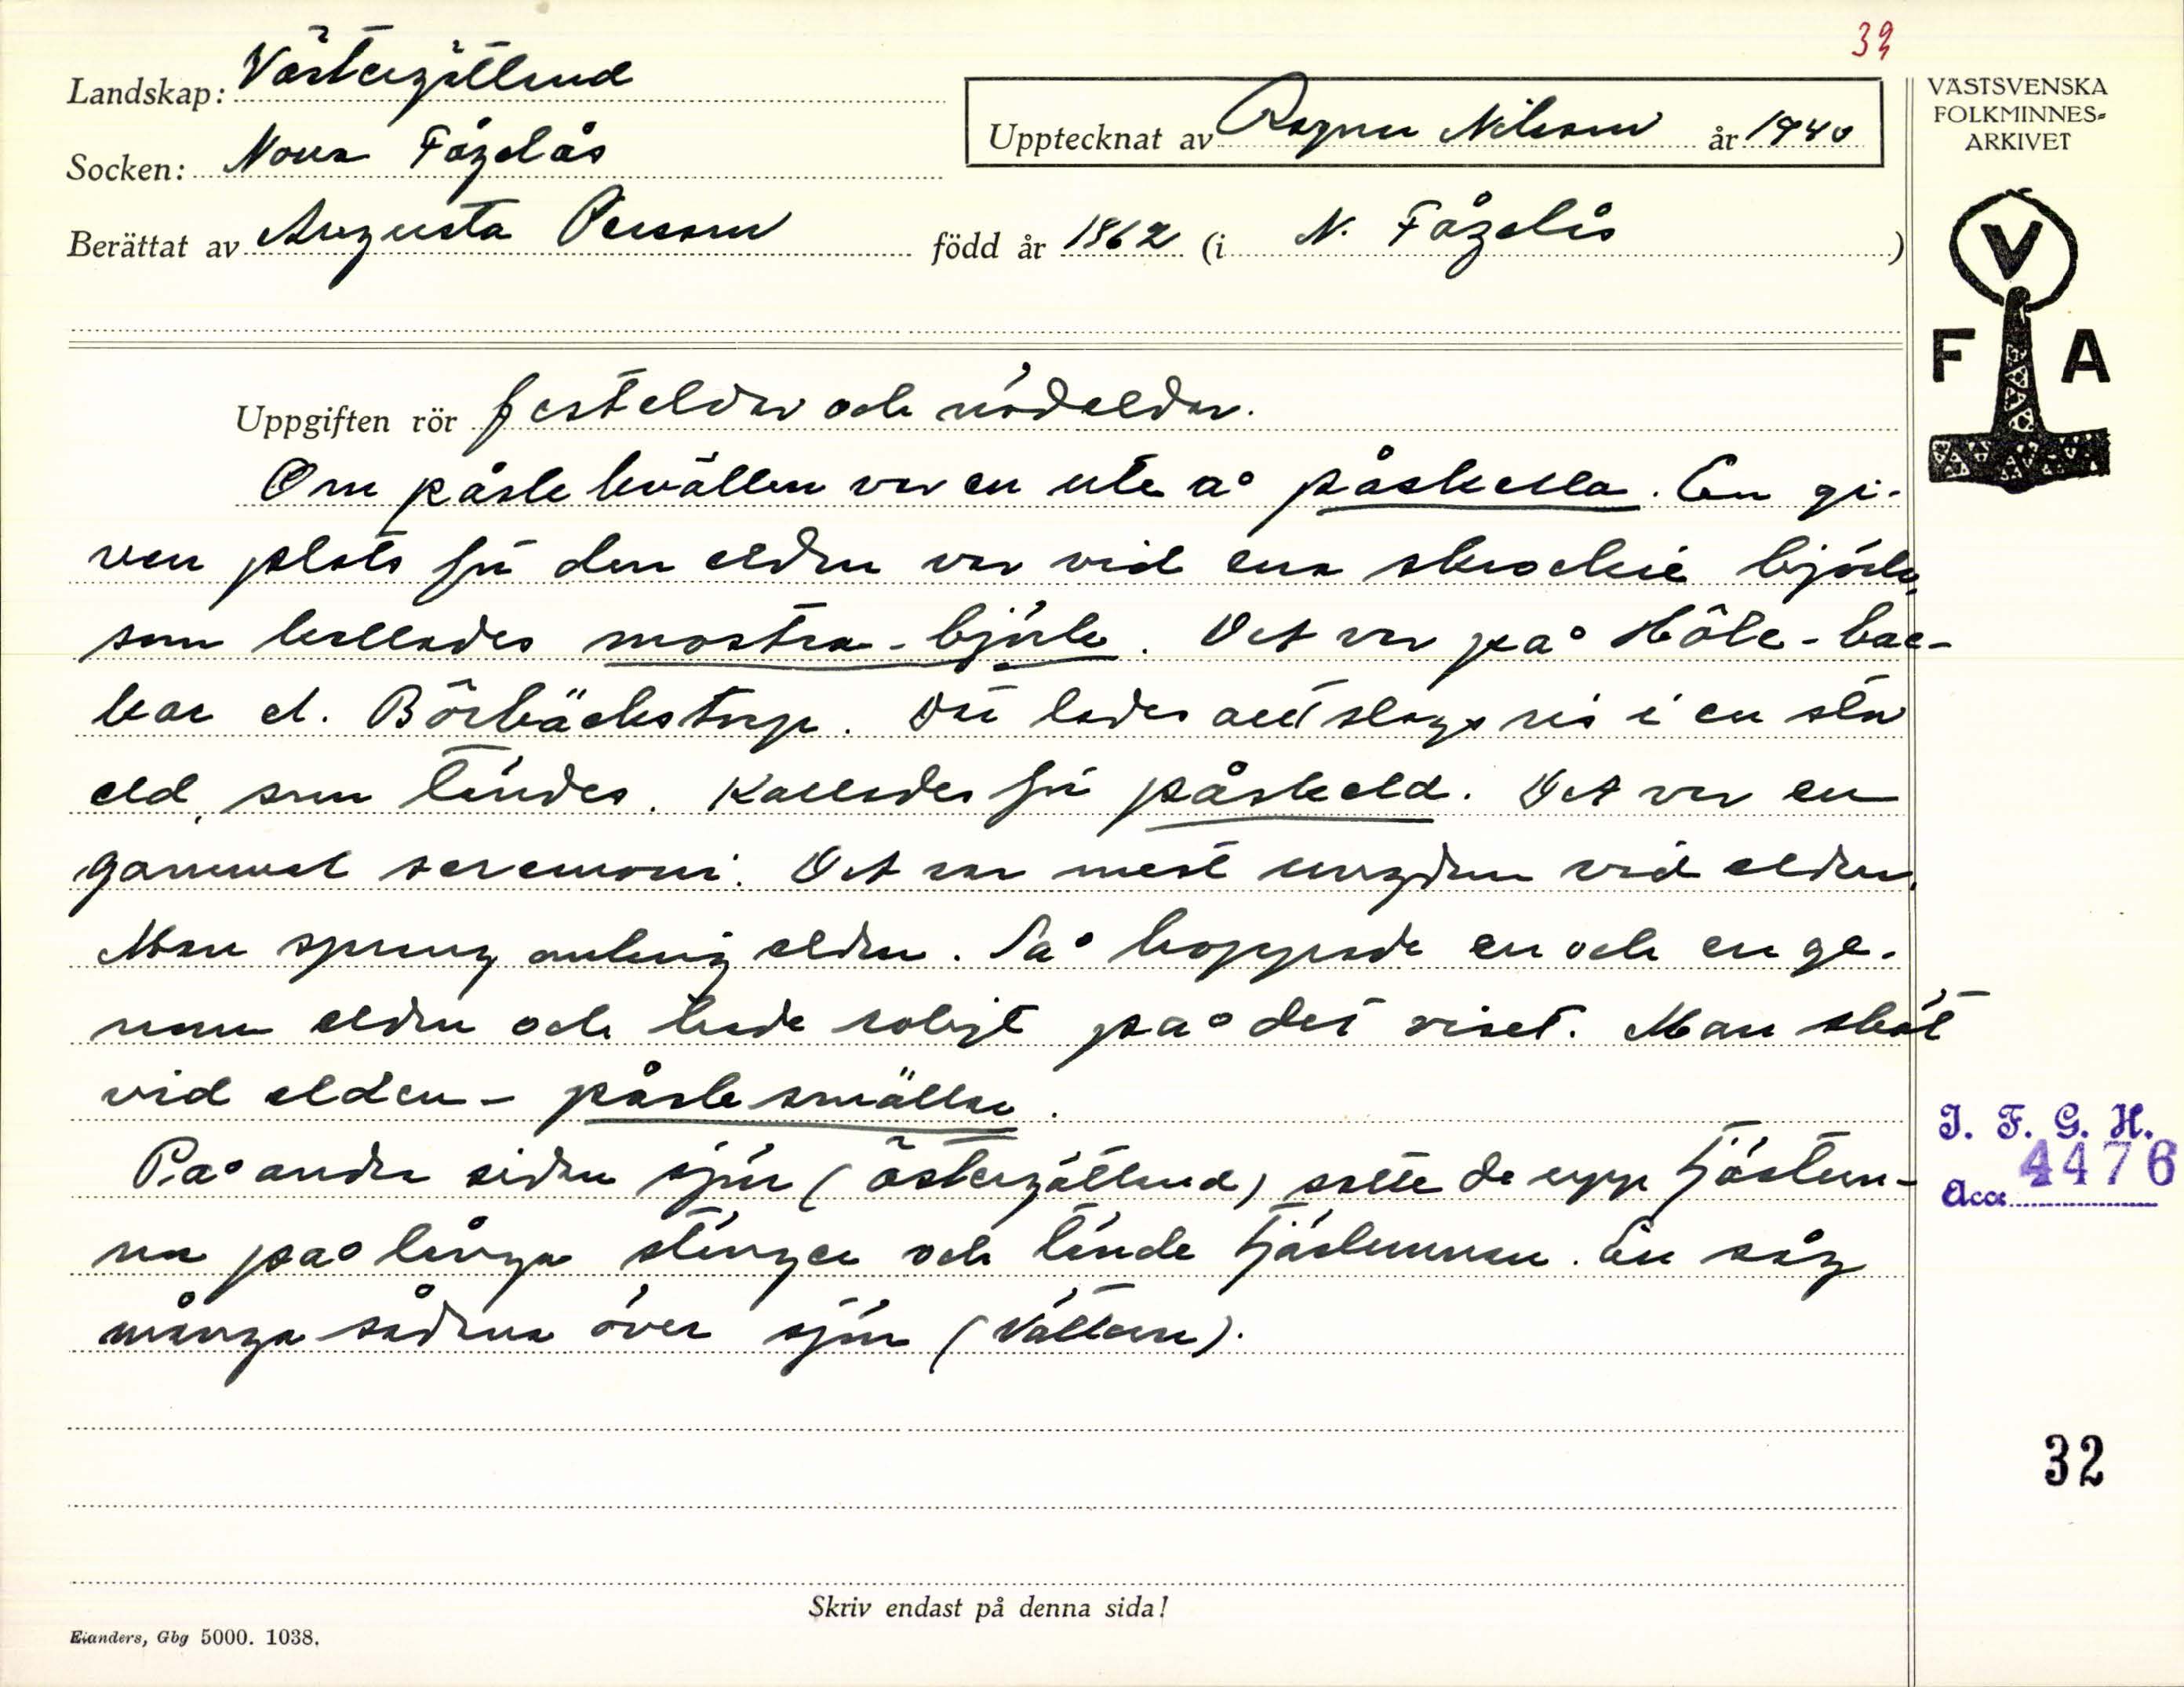 39
Landskap: Västergötland
Socken: Norra Fågelås
Upptecknat av Ragnar Nilsson år 1940
Berättat av Augusta Persson född år 1862 (i N. Fågelås)
VÄSTSVENSKA
FOLKMINNES=
ARKIVET
V
F A
Uppgiften rör festeldar och nödeldar.
Om påskkvällen var en ute å påskella. En gi-
ven plats för den elden var vid ena björk,
som kallades mostra-björk. Det var på Höle-bac-
kar d. Börbäckstorp. Där lades allt slags ris i en stor
eld, som tändes. Kallades för påskeld. Det var en
gammal seremoni. Det var mest ungdom vid elden.
Man sprang omkring elden. Så hoppade en och en ge-
nom elden och hade roligt på det viset. Man sköt
vid elden - påsksmällar.
På andra sidan sjön (Östergötland) satte de upp tjästun-
nor på långa stänger och tände tjästunnan. En såg
många sådana över sjön (Vättern).
I. F. G. H.
Acc. 4476
32
Skriv endast på denna sida!
Elanders, Gbg 5000. 1038.